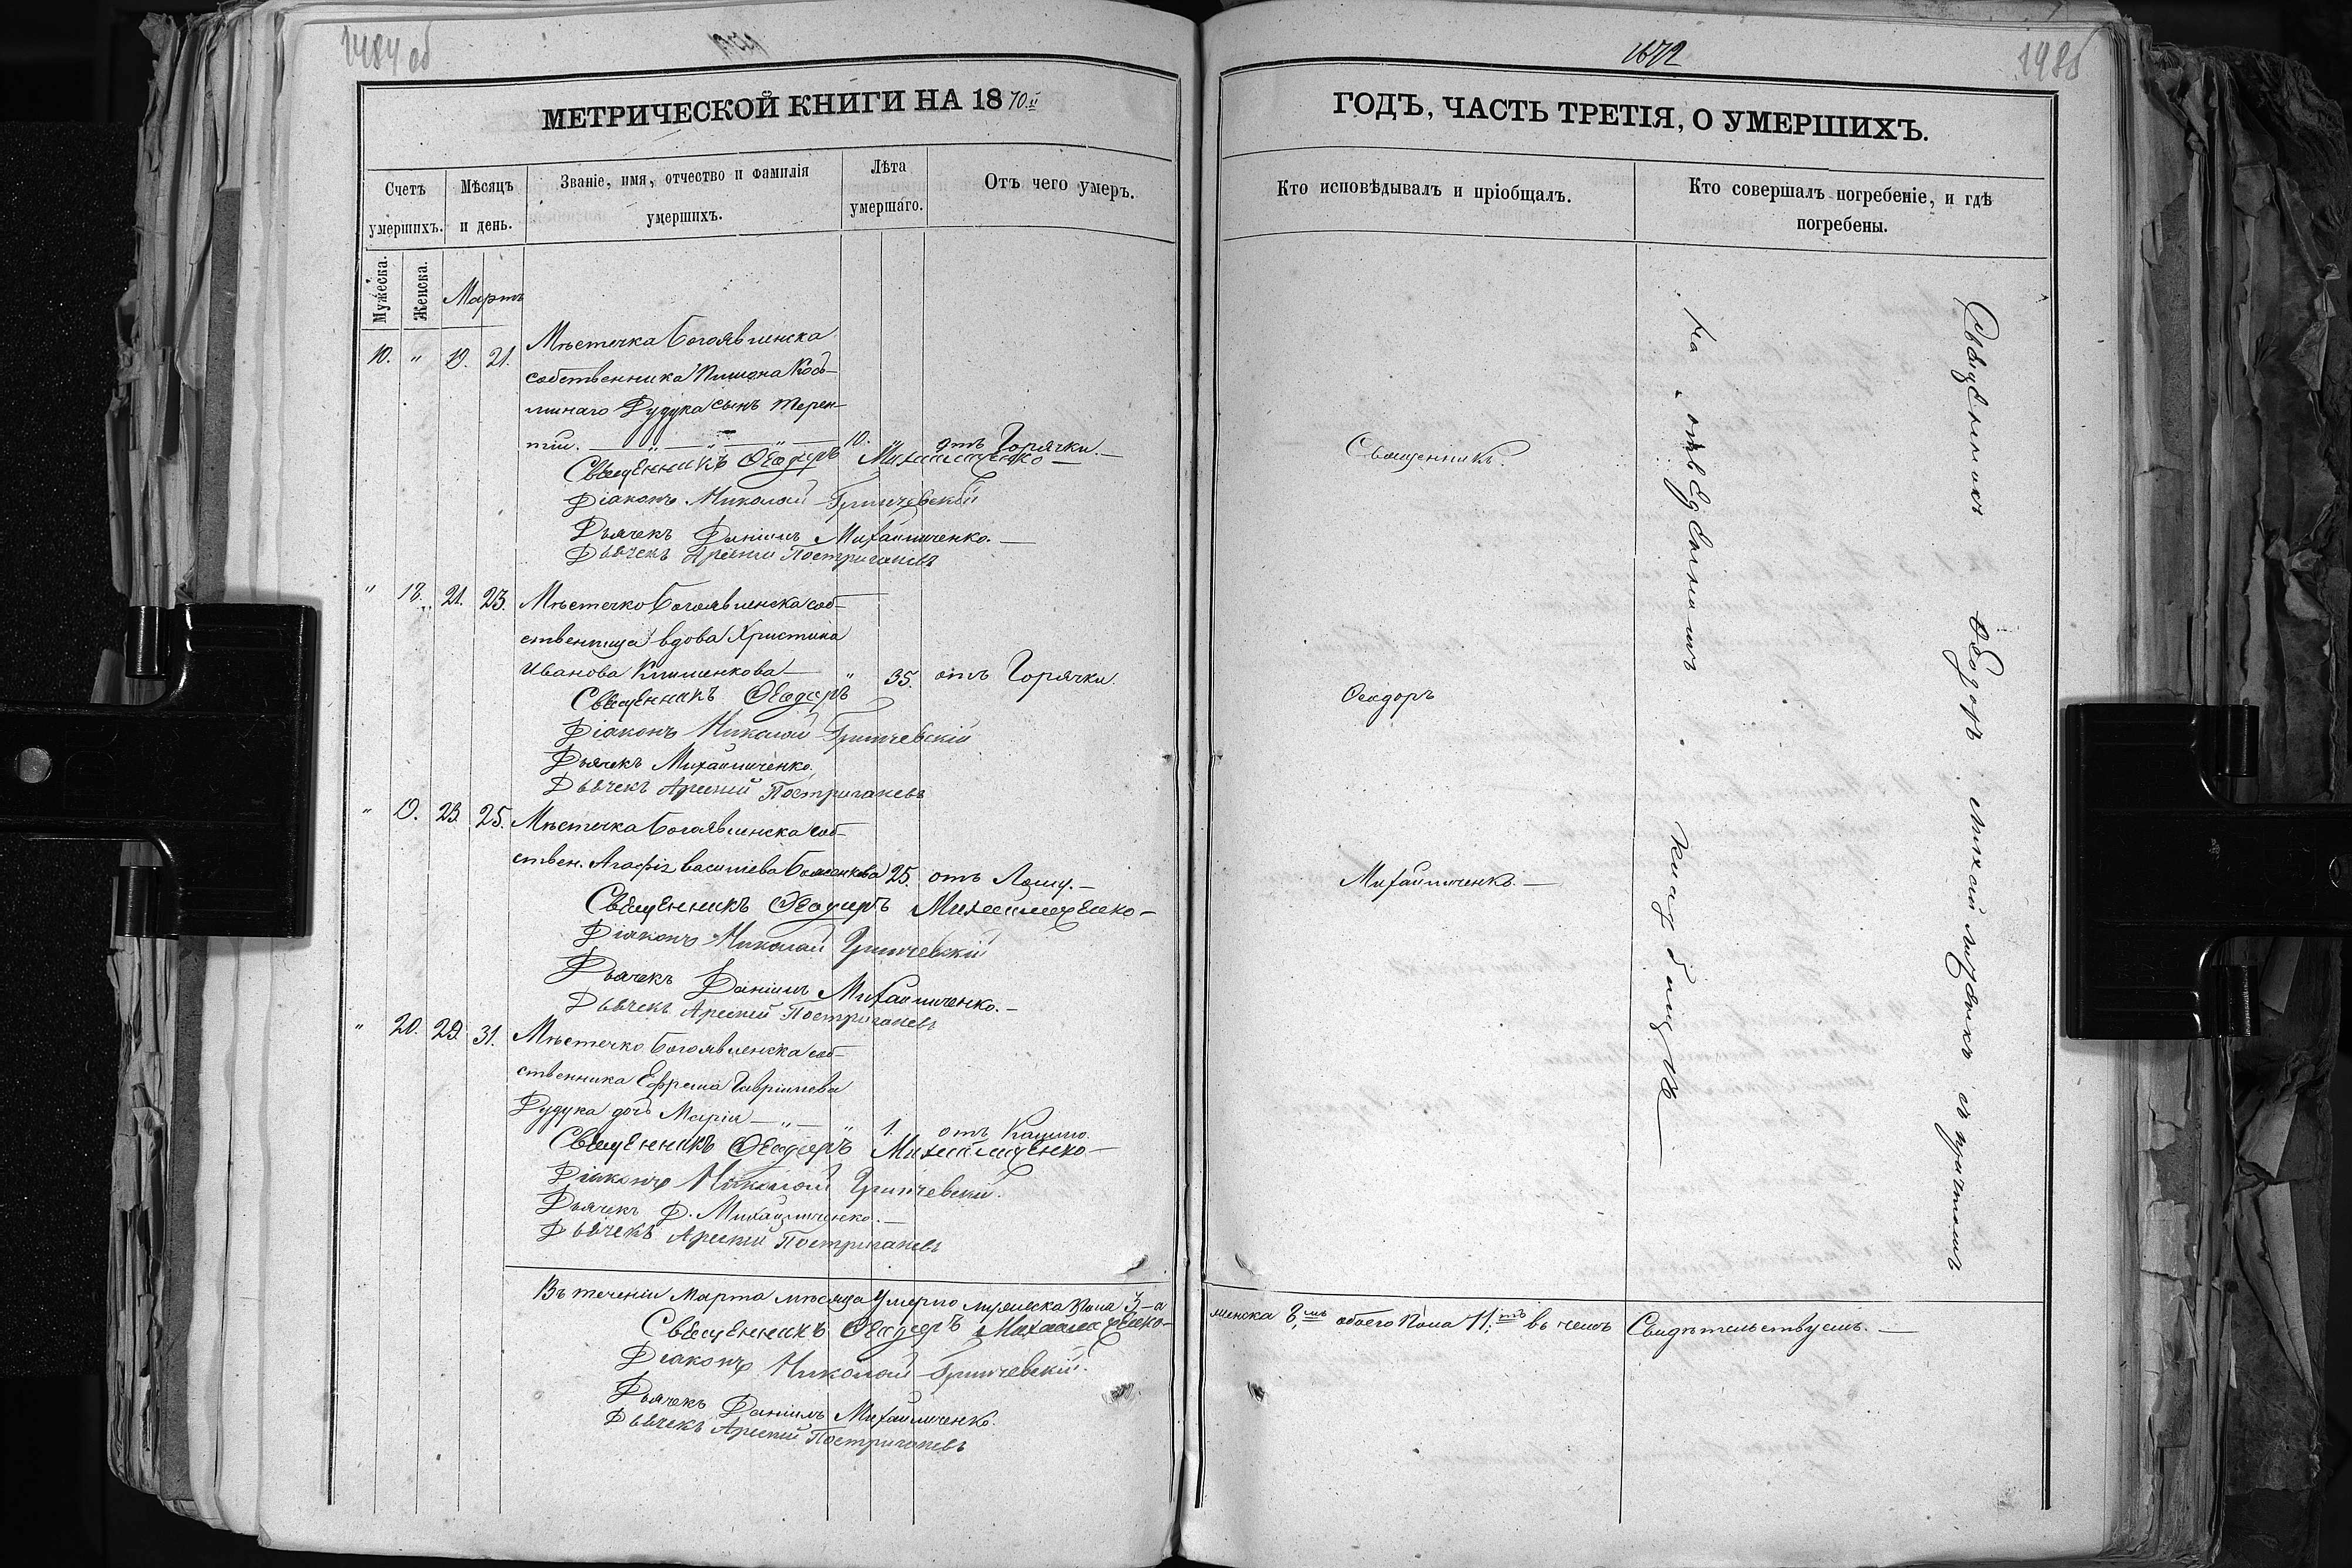 1484 об
МЕТРИЧЕСКОЙ КНИГИ НА 1870.й
Счетъ умершихъ.
Мѣсяцъ и день.
Званіе, имя, отчество и фамилія умершихъ.
Лѣта умершаго.
Отъ чего умеръ.
Мужеска.
Женска.
Мартъ
10. " 19. 21. Мѣстечка Богоявленска
собственника Пимона Кось-
минаго Дудука сынъ Терен-
тій. 10. " отъ Горячки.
Священникъ Ѳеодоръ Михайличенко
Діаконъ Николай Гринчевскій
Дьячекъ Даніилъ Михайличенко.
Дьячекъ Арсеній Постригачевъ
" 18. 21. 23. Мѣстечко Богоявленска соб-
ственница вдова Христина
Иванова Клименкова " 35. отъ Горячки.
Священникъ Ѳеодоръ
Діаконъ Николай Гринчевскій
Дьячекъ Михайличенко.
Дьячекъ Арсеній Постригачевъ
" 19. 23. 25. Мѣстечка Богоявленска соб-
ствен. Агафія Васильева 25. отъ
Священникъ Ѳеодоръ Михайличенко
Діаконъ Николай Гринчевскій
Дьячекъ Даніилъ Михайличенко.
Дьячекъ Арсеній Постригачевъ
" 20. 29. 31. Мѣстечко Богоявленска соб-
ственника Ефрема Гавріилева
Дудука дочь Марія " 1. отъ Кашлю
Священникъ Ѳеодоръ Михайличенко
Діаконъ Николай Гринчевскій.
Дьячекъ Д. Михайличенко.
Дьячекъ Арсеній Постригачевъ
Въ теченіи Марта мѣсяца умерло мужеска пола 3-а
Священникъ Ѳеодоръ Михайличенко
Діаконъ Николай Гринчевскій.
Дьячекъ Даніилъ Михайличенко.
Дьячекъ Арсеній Постригачевъ
1672
1485
ГОДЪ, ЧАСТЬ ТРЕТІЯ, О УМЕРШИХЪ.
Кто исповѣдывалъ и пріобщалъ.
Кто совершалъ погребеніе, и гдѣ погребены.
Священникъ
Ѳеодоръ
Михайличенко.
На отведенномъ кладбищѣ
Священникъ Ѳеодоръ Михайличенко съ причтомъ
женска 8,мь обоего пола 11.ть въ чемъ Свидѣтельствуемъ.